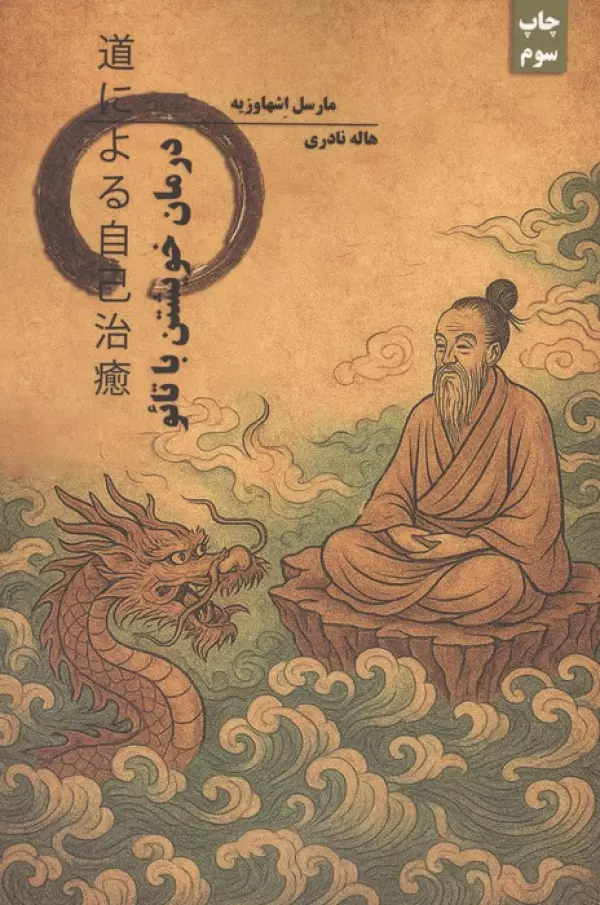 چاپ
سوم
مارسل اِشهاوزیه
هاله نادری
درمان خویشتن با تائو
道による自己治癒